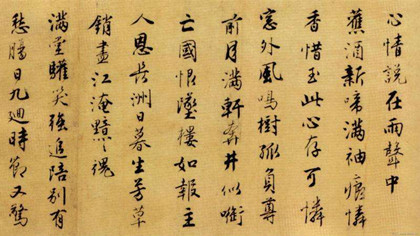 心情說在雨聲中
舊酒新啼滿袖痕憐
香惜玉此心存可憐
窓外風鳴樹孤負尊
前月滿軒奔井似銜
亡國恨墜樓如報主
人恩長洲日暮生芳草
銷盡江淹黯々魂
滿堂歡笑強追陪別有
愁腸日九迴時節又驚